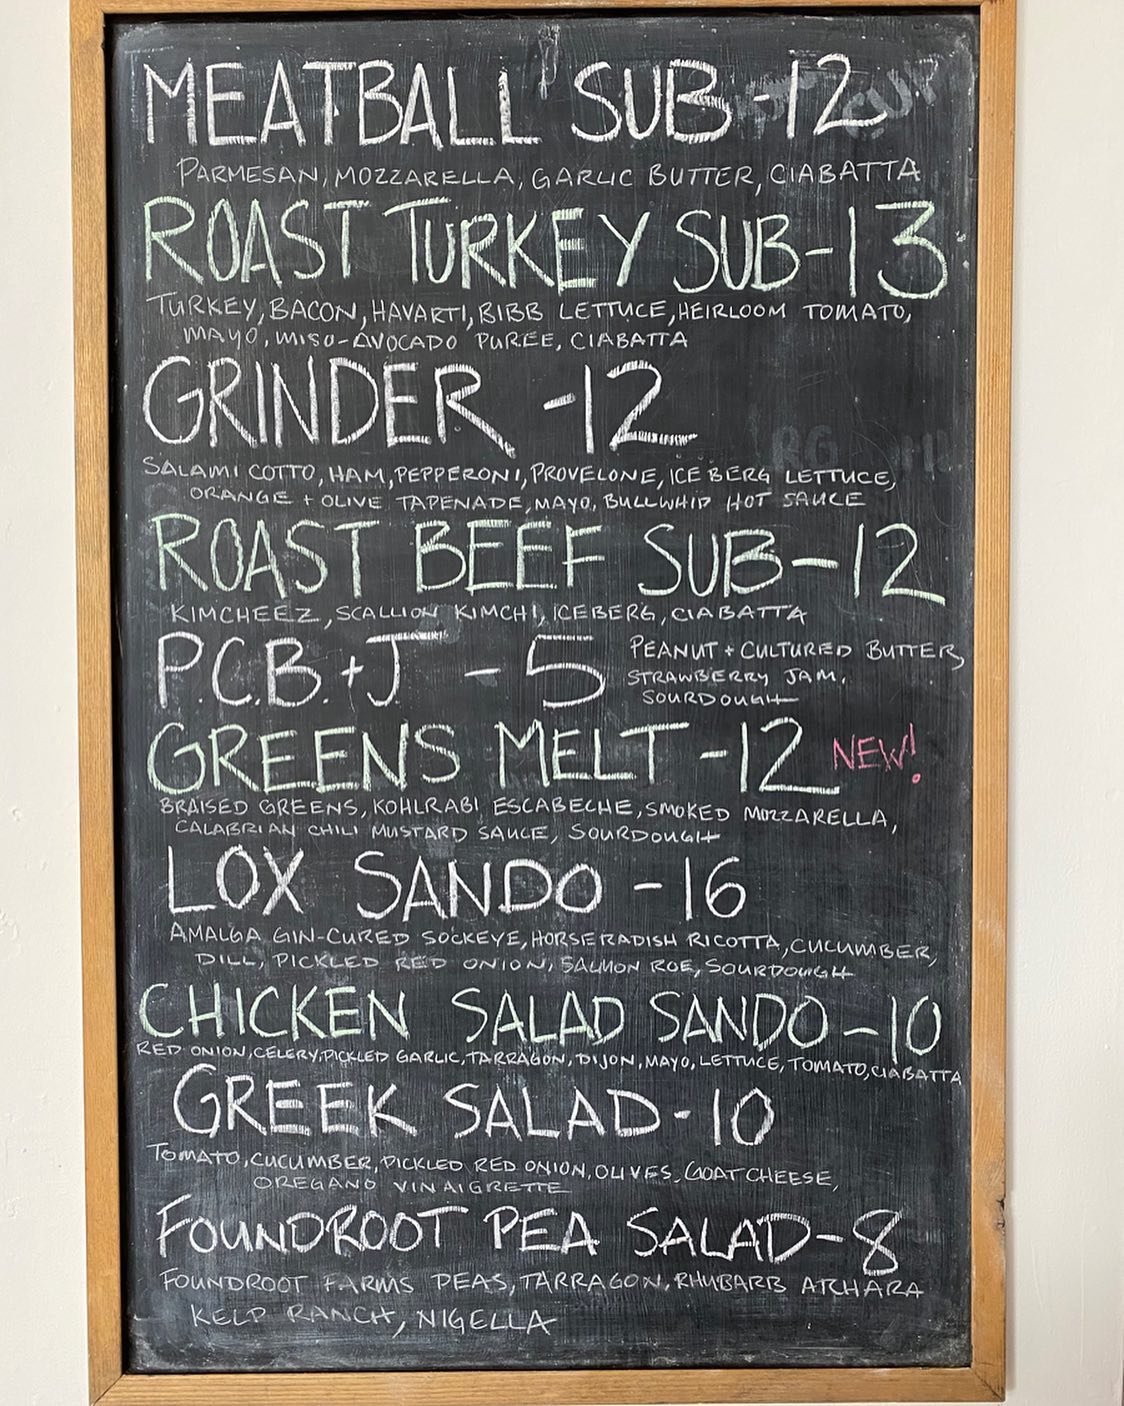 MEATBALL SUB - 12
PARMESAN, MOZZARELLA, GARLIC BUTTER, CIABATTA
ROAST TURKEY SUB - 13
TURKEY, BACON, HAVARTI, BIBB LETTUCE, HEIRLOOM TOMATO,
MAYO, MISO-AVOCADO PUREE, CIABATTA
GRINDER - 12
SALAMI COTTO, HAM, PEPPERONI, PROVELONE, ICEBERG LETTUCE,
ORANGE + OLIVE TAPENADE, MAYO, BULLWHIP HOT SAUCE
ROAST BEEF SUB - 12
KIMCHEEZ, SCALLION KIMCHI, ICEBERG, CIABATTA
P.C.B. + J - 5
PEANUT + CULTURED BUTTER,
STRAWBERRY JAM,
SOURDOUGH
GREENS MELT - 12 NEW!
BRAISED GREENS, KOHLRABI ESCABECHE, SMOKED MOZZARELLA,
CALABRIAN CHILI MUSTARD SAUCE, SOURDOUGH
LOX SANDO - 16
AMALGA GIN-CURED SOCKEYE, HORSERADISH RICOTTA, CUCUMBER,
DILL, PICKLED RED ONION, SALMON ROE, SOURDOUGH
CHICKEN SALAD SANDO - 10
RED ONION, CELERY, PICKLED GARLIC, TARRAGON, DIJON, MAYO, LETTUCE, TOMATO, CIABATTA
GREEK SALAD - 10
TOMATO, CUCUMBER, PICKLED RED ONION, OLIVES, GOAT CHEESE,
OREGANO VINAIGRETTE
FOUNDROOT PEA SALAD - 8
FOUNDROOT FARMS PEAS, TARRAGON, RHUBARB ATCHARA
KELP RANCH, NIGELLA